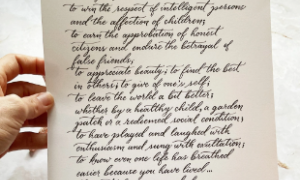 to win the respect of intelligent persons
and the affection of children;
to earn the approbation of honest
citizens and endure the betrayal of
false friends;
to appreciate beauty; to find the best
in others; to give of one's self;
to leave the world a bit better,
whether by a healthy child, a garden
patch or a redeemed social condition;
to have played and laughed with
enthusiasm and sung with exultation;
to know even one life has breathed
easier because you have lived...